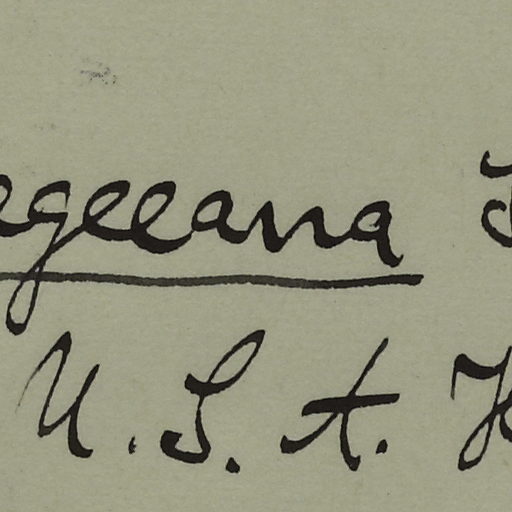 egeeana
U. S. A. H